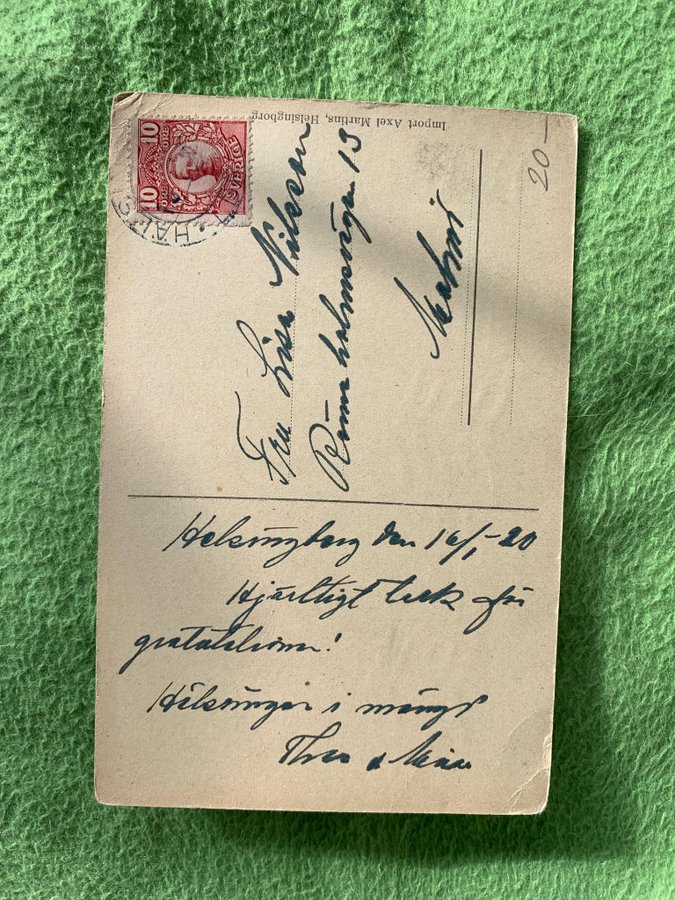 Import Axel Martins, Helsingborg
10 ÖRE 10
SVERIGE
Fru Lisa Nilsson
Rönneholmsvägen 13
Malmö
20-
Helsingborg den 16/1 -20
Hjärtligt tack för
gratulationen!
Hälsningar i mängd
Theo &